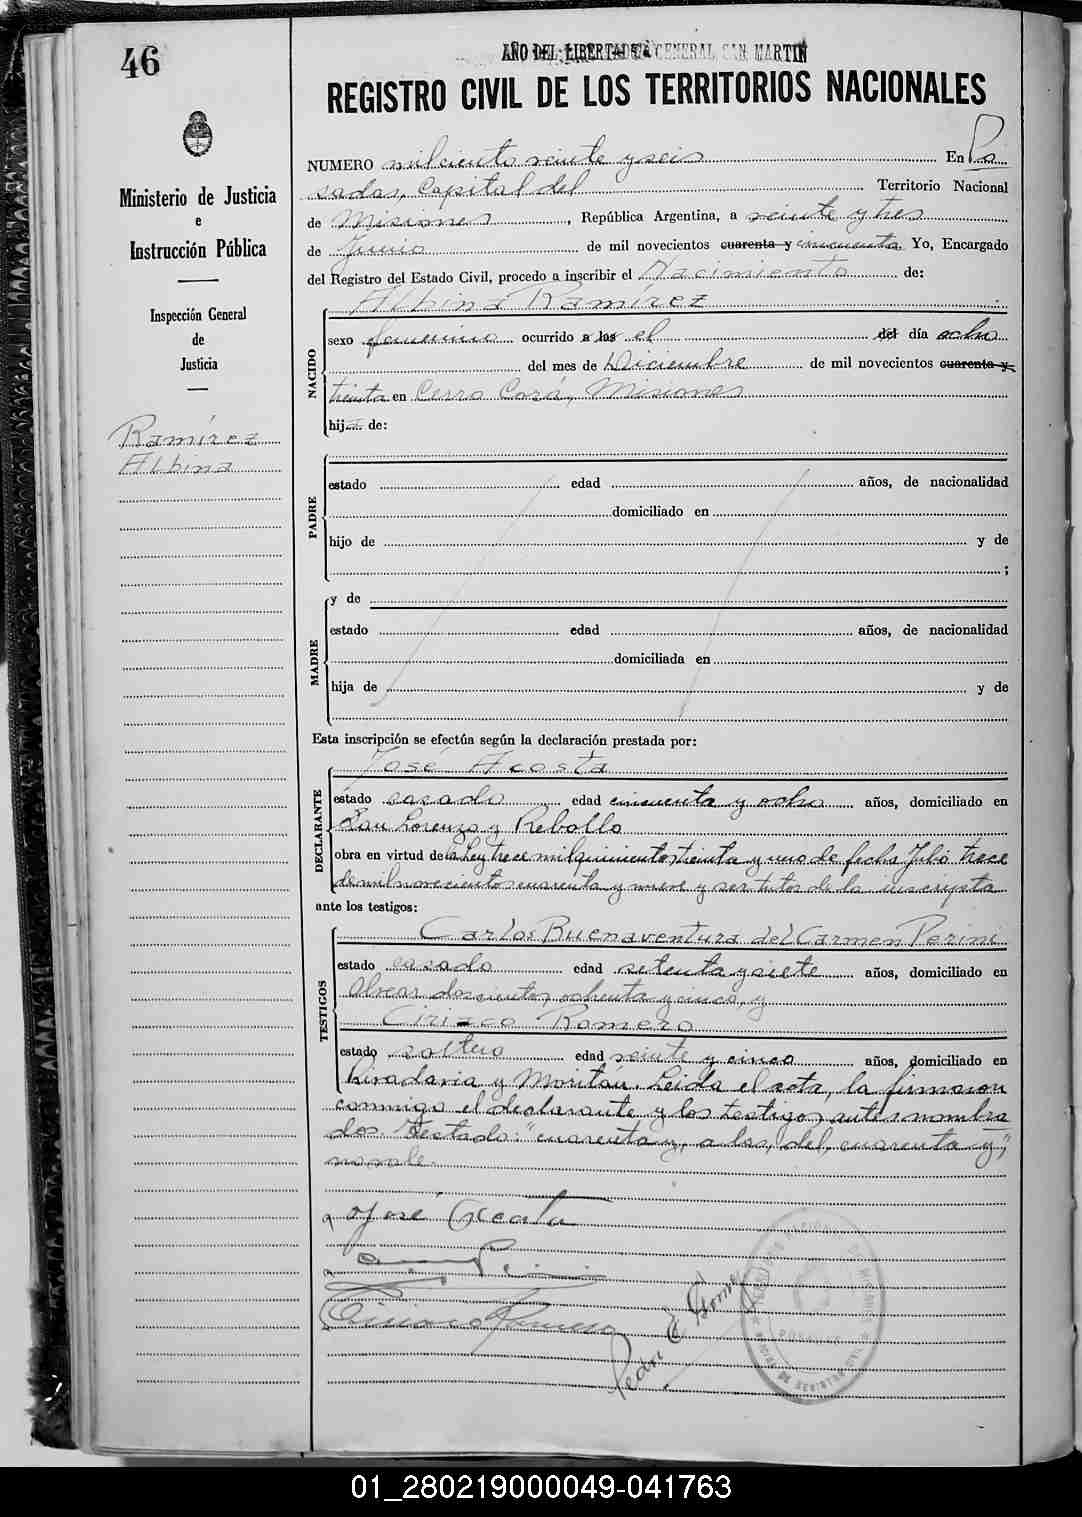 46
AÑO DEL LIBERTADOR GENERAL SAN MARTIN
REGISTRO CIVIL DE LOS TERRITORIOS NACIONALES
Ministerio de Justicia
e
Instrucción Pública
Inspección General
de
Justicia
Ramírez
Albina
NUMERO mil ciento veinte y seis En Po
sadas, Capital del Territorio Nacional
de Misiones, República Argentina, a veinte y tres
de Junio de mil novecientos cuarenta y cincuenta. Yo, Encargado
del Registro del Estado Civil, procedo a inscribir el Nacimiento de:
Albina Ramírez
NACIDO
sexo femenino ocurrido a las el del día ocho
del mes de Diciembre de mil novecientos cuarenta y
treinta en Cerro Corá, Misiones
hija de:
PADRE
estado edad años, de nacionalidad
domiciliado en
hijo de y de
;
MADRE
y de
estado edad años, de nacionalidad
domiciliada en
hija de y de
Esta inscripción se efectúa según la declaración prestada por:
José Acosta
DECLARANTE
estado casado edad cincuenta y ocho años, domiciliado en
San Lorenzo y Rebollo
obra en virtud de la Ley trece mil quinientos treinta y uno de fecha Julio trece
de mil novecientos cuarenta y nueve y ser tutor de la inscripta
ante los testigos:
Carlos Buenaventura del Carmen Perini
TESTIGOS
estado casado edad setenta y siete años, domiciliado en
Alvear doscientos ochenta y cinco, y
Ciriaco Romero
estado soltero edad veinte y cinco años, domiciliado en
Rivadavia y Moritán. Leida el acta, la firmaron
conmigo el declarante y los testigos antes nombra
dos Testado: "cuarenta y, a las, del, cuarenta y",
no vale.
José Acosta
Ciriaco Romero
Pedro E
01_280219000049-041763